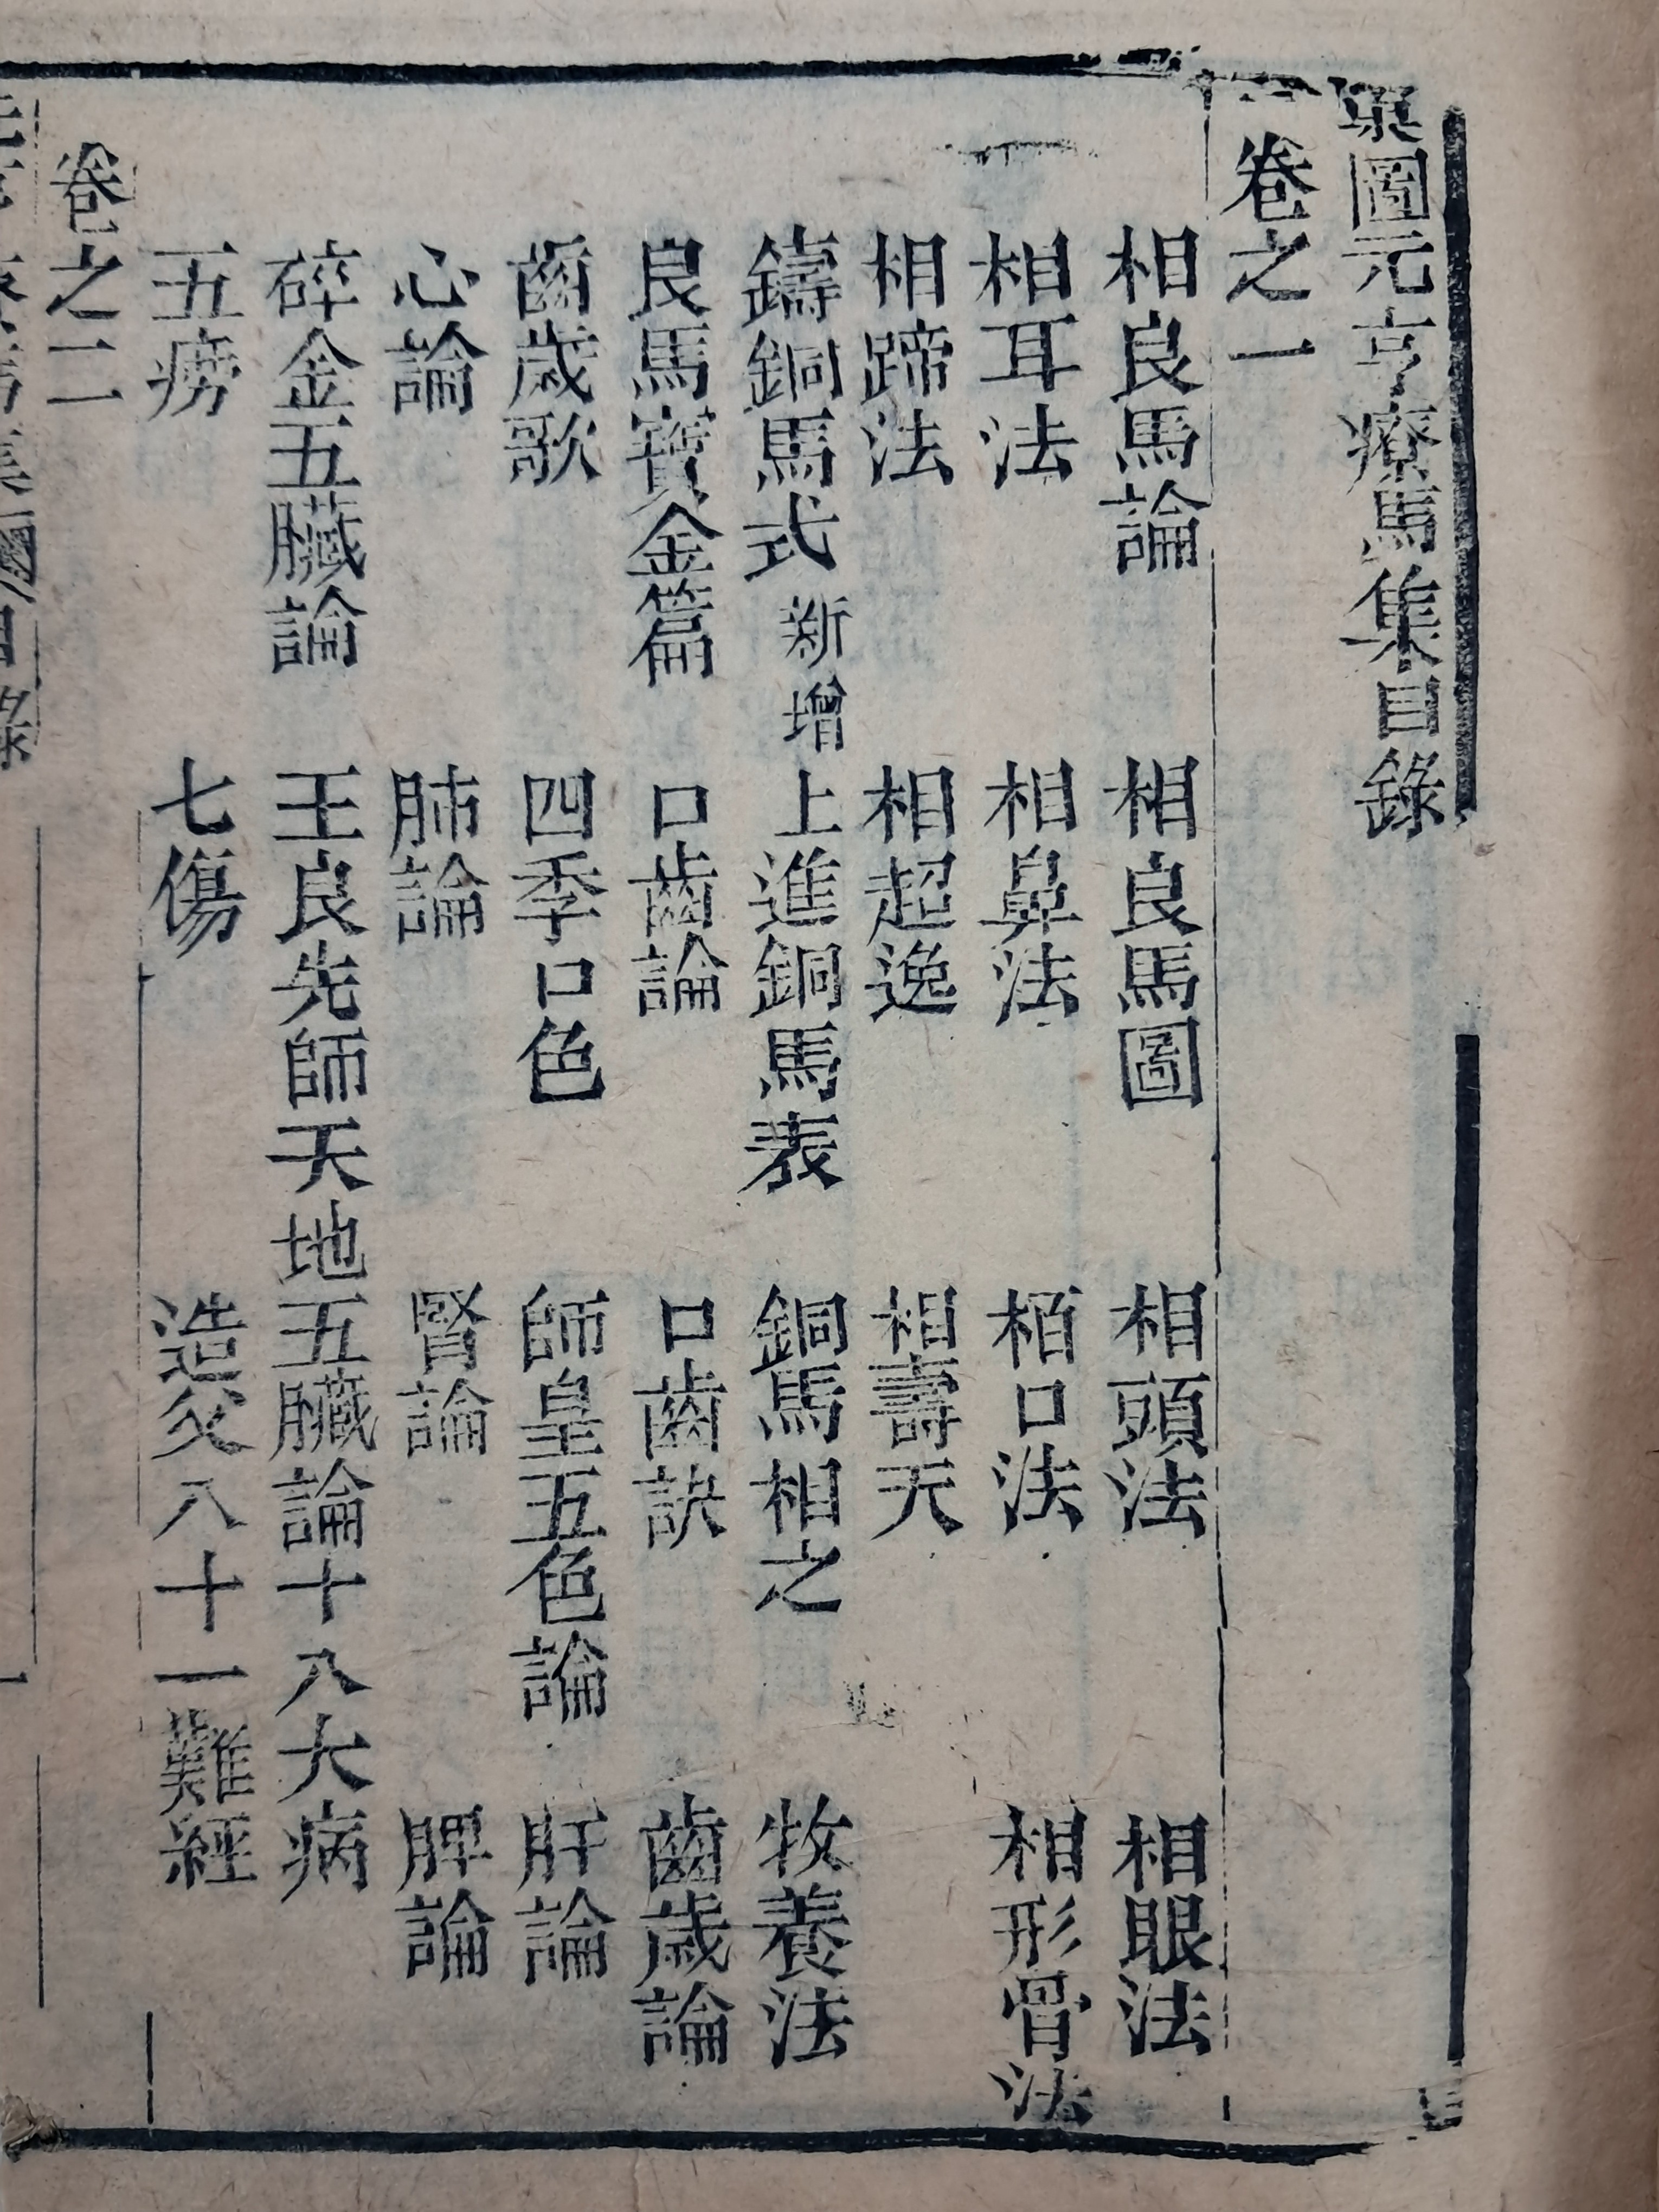 圖元亨療馬集目錄
卷之一
相良馬論 相良馬圖 相頭法 相眼法
相耳法 相鼻法 栢口法 相形骨法
相蹄法 相超逸 相壽夭
鑄銅馬式 新增 上進銅馬表 銅馬相之 牧養法
良馬寶金篇 口齒論 口齒訣 齒歲論
齒歲歌 四季口色 師皇五色論 肝論
心論 肺論 腎論 脾論
碎金五臟論 王良先師天地五臟論十八大病
五癆 七傷 造父八十一難經
卷之二